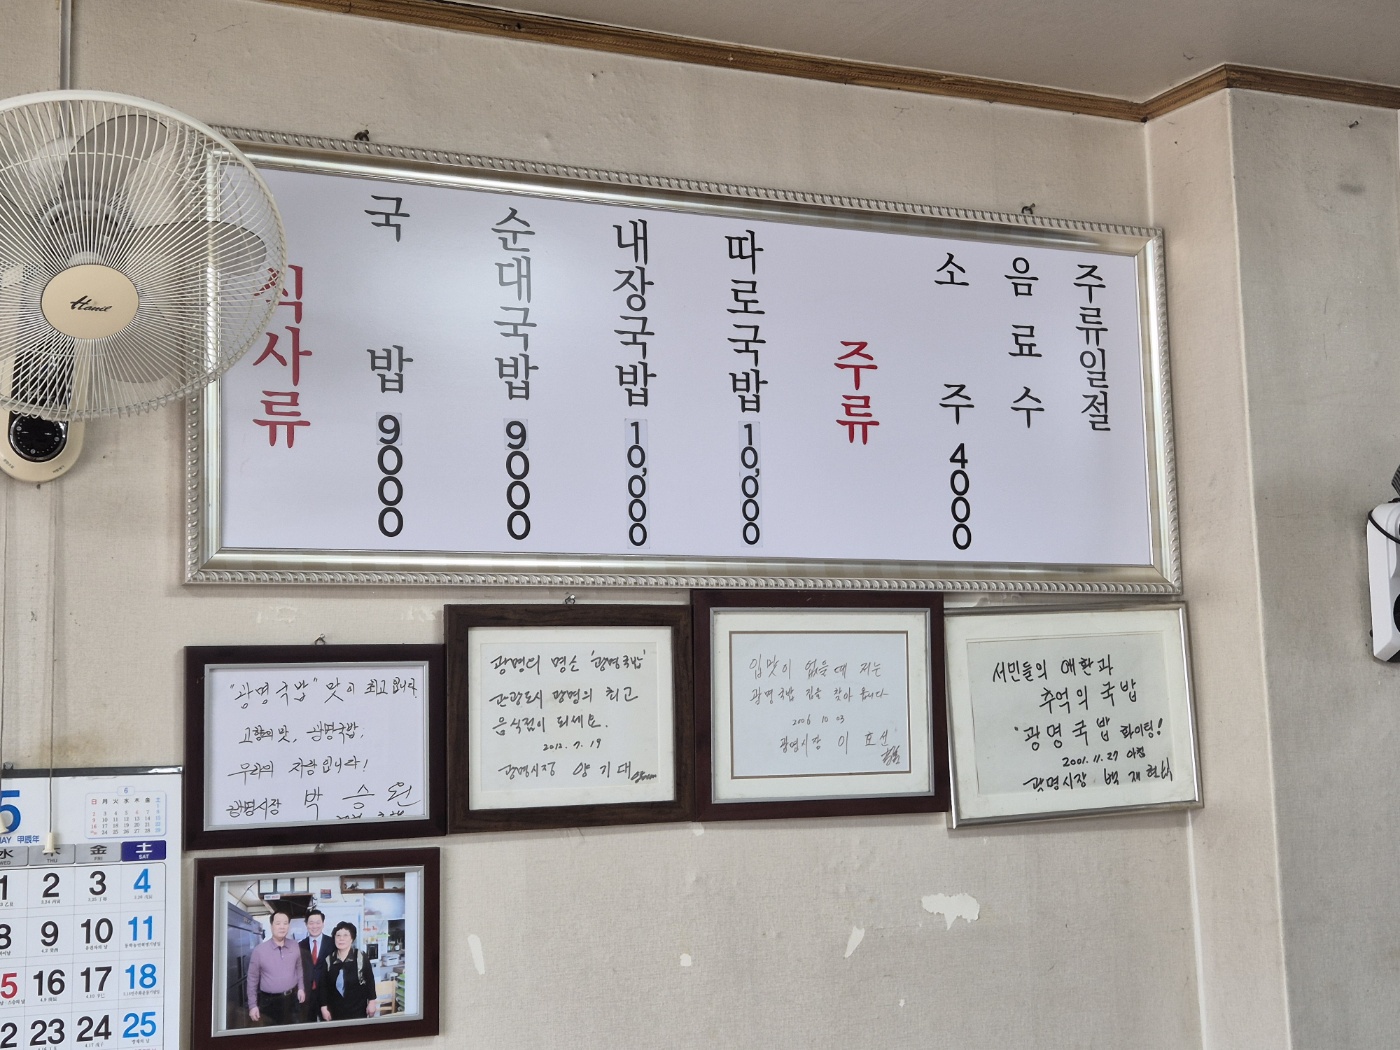 Hanil
식사류
국밥 9000
순대국밥 9000
내장국밥 10,000
따로국밥 10,000
주류
소주 4000
음료수
주류일절
"광명국밥" 맛이 최고입니다.
고향의 맛, 광명국밥,
우리의 자랑입니다!
광명시장 박승원
광명의 명소 '광명국밥'
관광도시 광명의 최고
음식점이 되세요.
2012. 7. 19
광명시장 양기대
입맛이 없을 때 저는
광명국밥 집을 찾아 옵니다
2006 10 03
광명시장 이효선
서민들의 애환과
추억의 국밥
"광명국밥 화이팅!
2001. 11. 27 아침
광명시장 백재현
5
MAY 甲辰年
6
日 月 火 水 木 金 土
水 木 金 土
WED THU FRI SAT
1 2 3 4
8 9 10 11
5 16 17 18
2 23 24 25